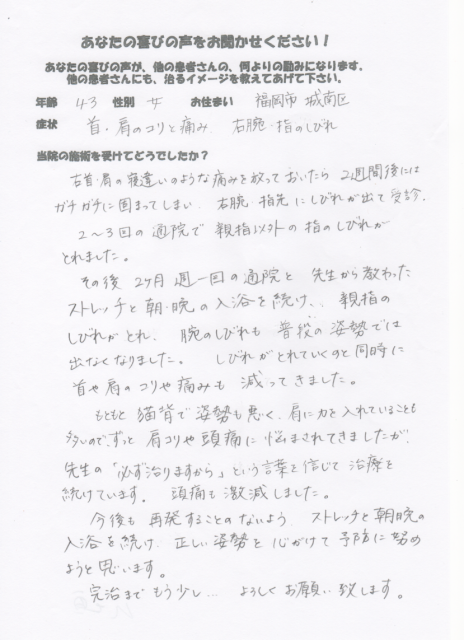 あなたの喜びの声をお聞かせください！
あなたの喜びの声が、他の患者さんの、何よりの励みになります。
他の患者さんにも、治るイメージを教えてあげて下さい。
年齢 43 性別 女 お住まい 福岡市 城南区
症状 首・肩のコリと痛み 右腕・指のしびれ
当院の施術を受けてどうでしたか？
右首・肩の寝違いのような痛みを放っておいたら 2週間後には
ガチガチに固まってしまい 右腕・指先にしびれが出て受診。
2〜3回の通院で 親指以外の指のしびれが
とれました。
その後 2ヶ月 週一回の通院と 先生から教わった
ストレッチと朝・晩の入浴を続け、親指の
しびれがとれ、腕のしびれも 普段の姿勢では
出なくなりました。 しびれがとれていくのと同時に
首や肩のコリや痛みも 減ってきました。
もともと 猫背で姿勢も悪く、肩に力を入れていることも
多いので、ずっと 肩コリや頭痛に悩まされてきましたが、
先生の「必ず治りますから」という言葉を信じて 治療を
続けています。 頭痛も激減しました。
今後も 再発することのないよう、ストレッチと朝晩の
入浴を続け、正しい姿勢を心がけて 予防に努め
ようと思います。
完治までもう少し… よろしくお願い致します。